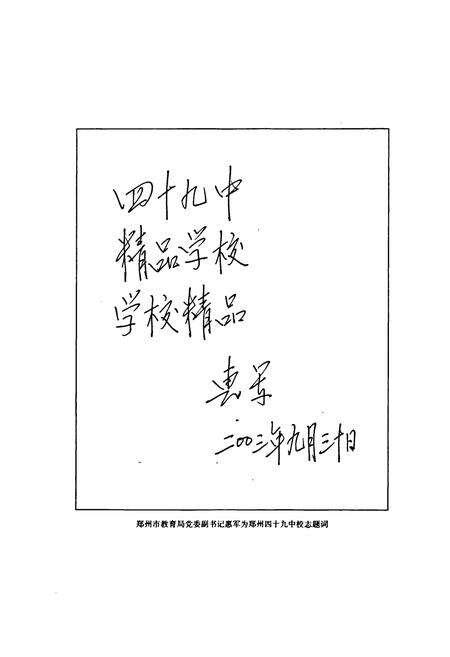 四十九中
精品学校
学校精品
惠军
二〇〇三年九月三十日
郑州市教育局党委副书记惠军为郑州四十九中校志题词